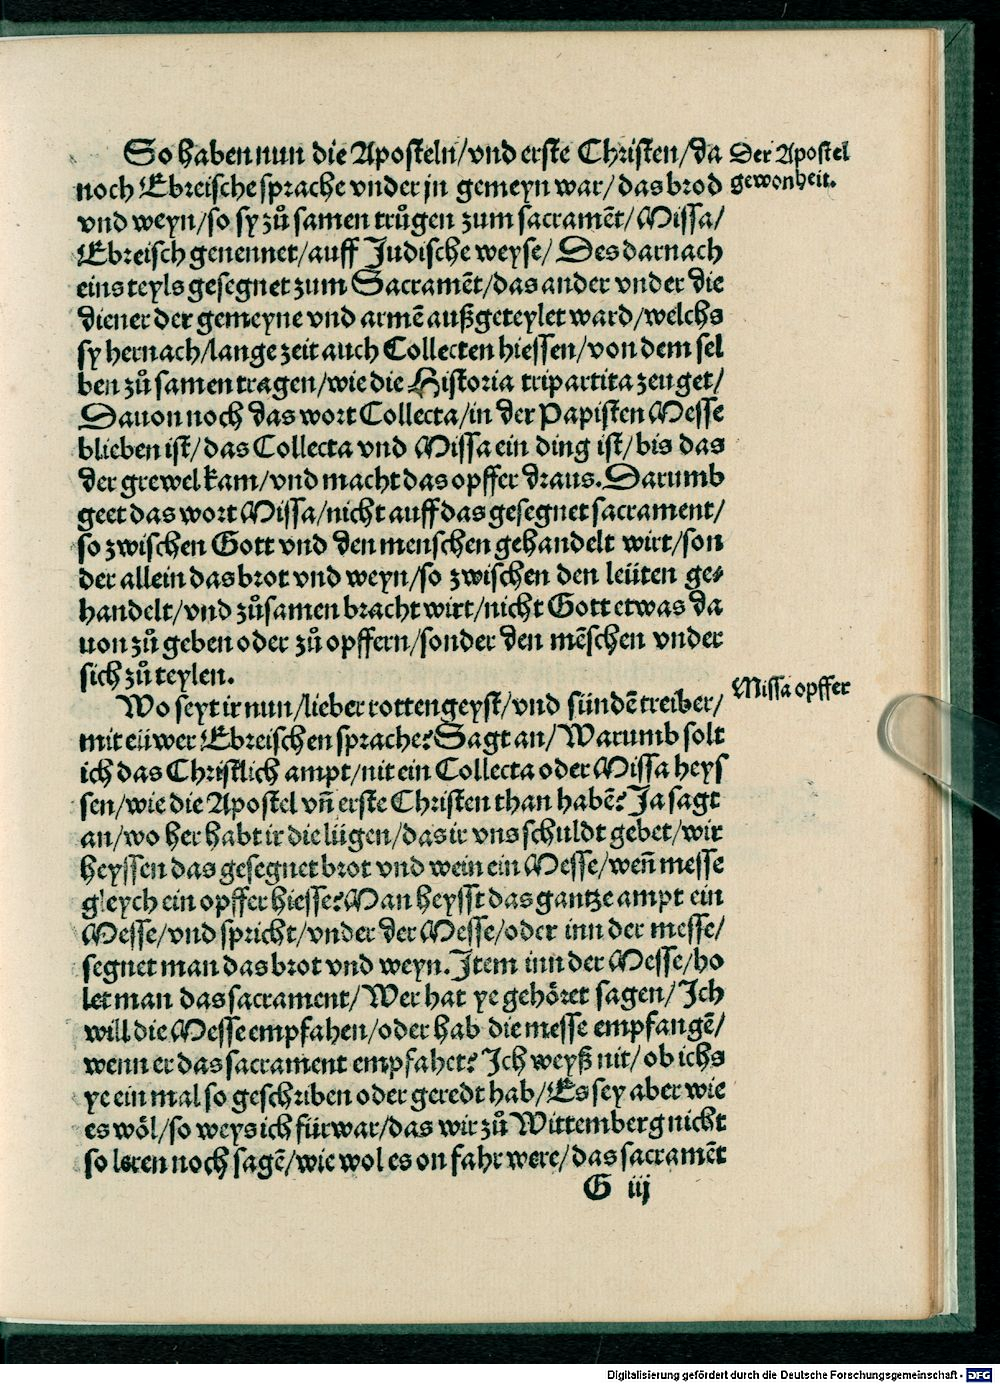 So haben nun die Aposteln/vnd erste Christen/da
Der Apostel
noch Ebreische sprache vnder jn gemeyn war/das brod
gewonheit.
vnd weyn/so sy zů samen trůgen zum sacramēt/Missa/
Ebreisch genennet/auff Judische weyse/ Des darnach
eins teyls gesegnet zum Sacramēt/das ander vnder die
diener der gemeyne vnd armē außgeteylet ward/welchs
sy hernach/lange zeit auch Collecten hiessen/von dem sel
ben zů samen tragen/wie die Historia tripartita zeuget/
Dauon noch das wort Collecta/in der Papisten Messe
blieben ist/das Collecta vnd Missa ein ding ist/bis das
der grewel kam/vnd macht das opffer draus. Darumb
geet das wort Missa/nicht auff das gesegnet sacrament/
so zwischen Gott vnd den menschen gehandelt wirt/son
der allein das brot vnd weyn/so zwischen den leüten ge⸗
handelt/vnd zůsamen bracht wirt/nicht Gott etwas da
uon zů geben oder zů opffern/sonder den mēschen vnder
sich zů teylen.
Missa opffer
Wo seyt ir nun/lieber rottengeyst/vnd sündē treiber/
mit eüwer Ebreischen sprache? Sagt an/Warumb solt
ich das Christlich ampt/nit ein Collecta oder Missa heys
sen/wie die Apostel vñ erste Christen than habē? Ja sagt
an/wo her habt ir die lügen/das ir vns schuldt gebet/wir
heyssen das gesegnet brot vnd wein ein Messe/weñ messe
gleych ein opffer hiesse? Man heysst das gantze ampt ein
Messe/vnd spricht/vnder der Messe/oder inn der messe/
segnet man das brot vnd weyn. Item inn der Messe/ho
let man das sacrament/Wer hat ye gehöret sagen/Ich
will die Messe empfahen/oder hab die messe empfangē/
wenn er das sacrament empfahet? Ich weyß nit/ob ichs
ye ein mal so geschriben oder geredt hab/Es sey aber wie
es wöl/so weys ich fürwar/das wir zů Wittemberg nicht
so leren noch sagē/wie wol es on fahr were/das sacramēt
G iij
Digitalisierung gefördert durch die Deutsche Forschungsgemeinschaft - DFG